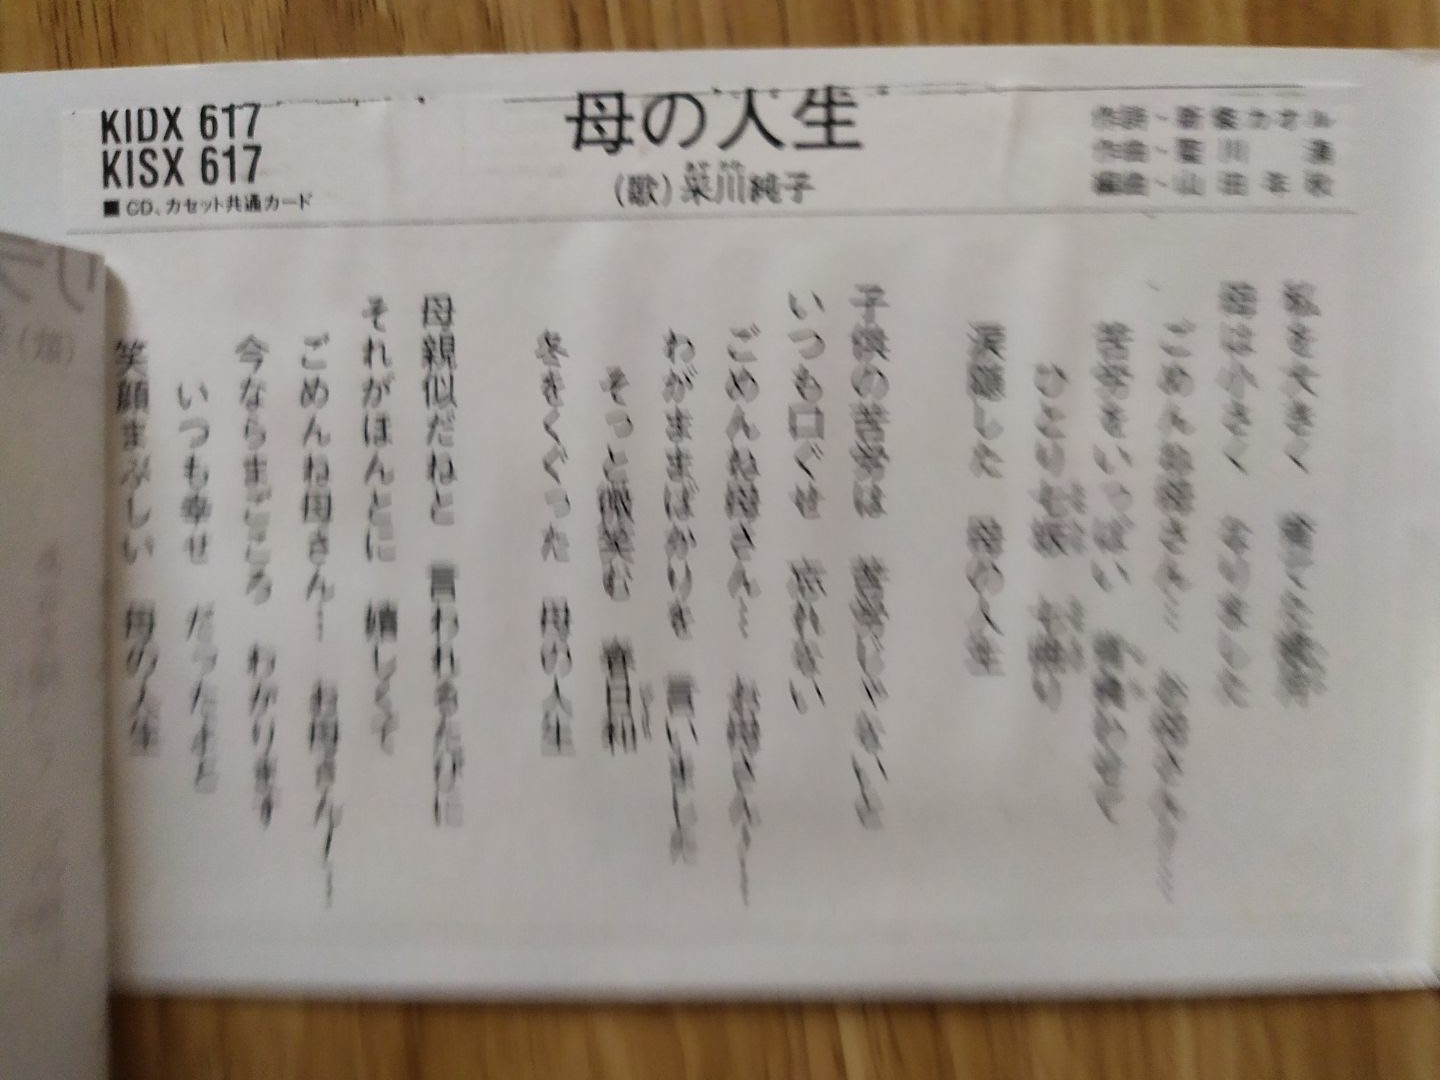 KIDX 617
KISX 617
■ CD、カセット共通カード
母の人生
(歌) 菜川純子
作詞・新條カオル
作曲・聖川 湧
編曲・山田年秋
私を大きく 育てた
母は小さく なりました
ごめんね母さん… お母さん…
苦労をいっぱい 背負いこんで
ひとり七坂 七曲り
涙隠した 母の人生
子供の苦労は 苦労じゃないと
いつも口ぐせ 忘れない
ごめんね母さん… お母さん…
わがままばかりを 言いました
そっと微笑む 春日和
冬をくぐった 母の人生
母親似だねと 言われるたびに
それがほんとに 嬉しくて
ごめんね母さん… お母さん…
今ならまごころ わかります
いつも幸せ だったよと
笑顔まぶしい 母の人生